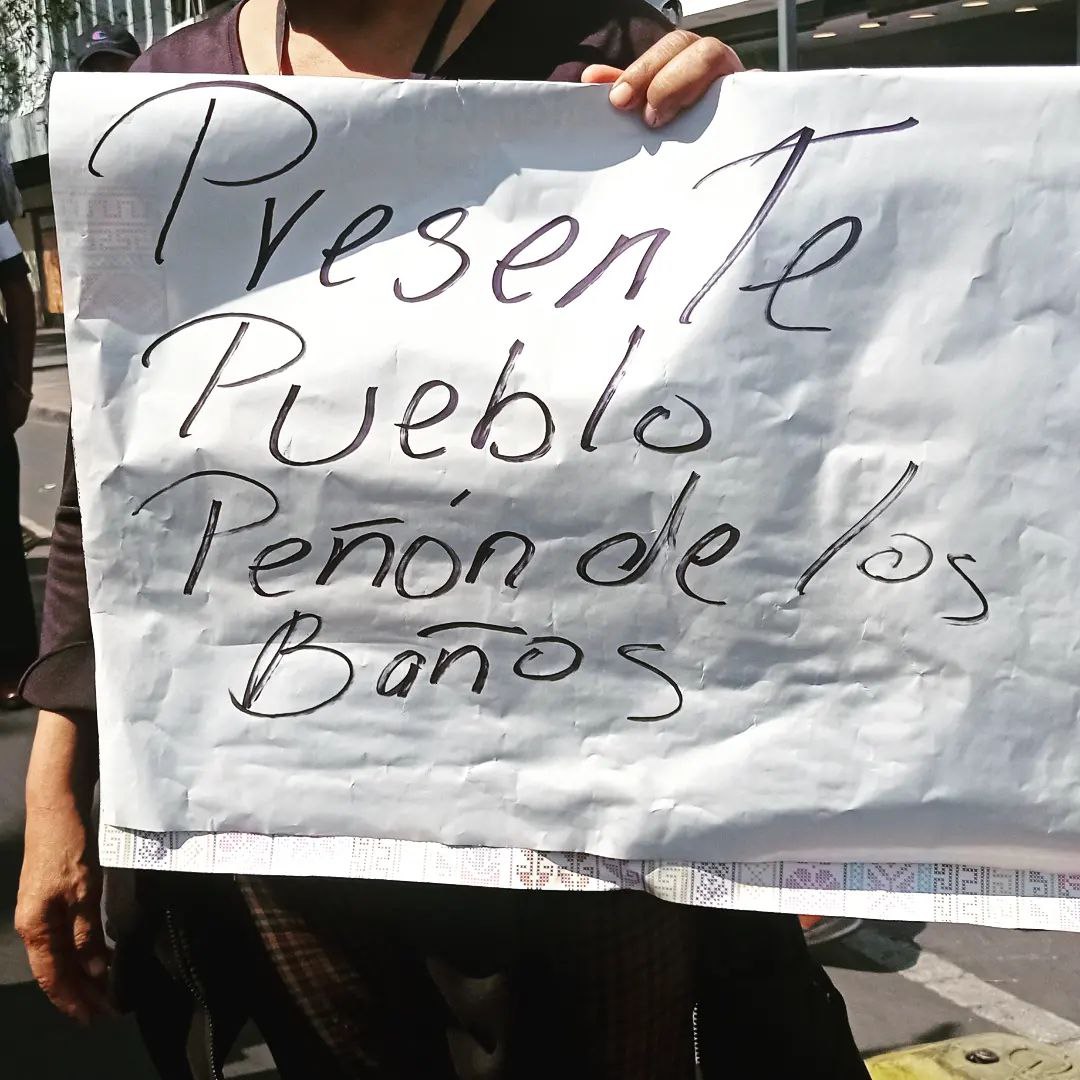 Presente
Pueblo
Peñón de los
Baños